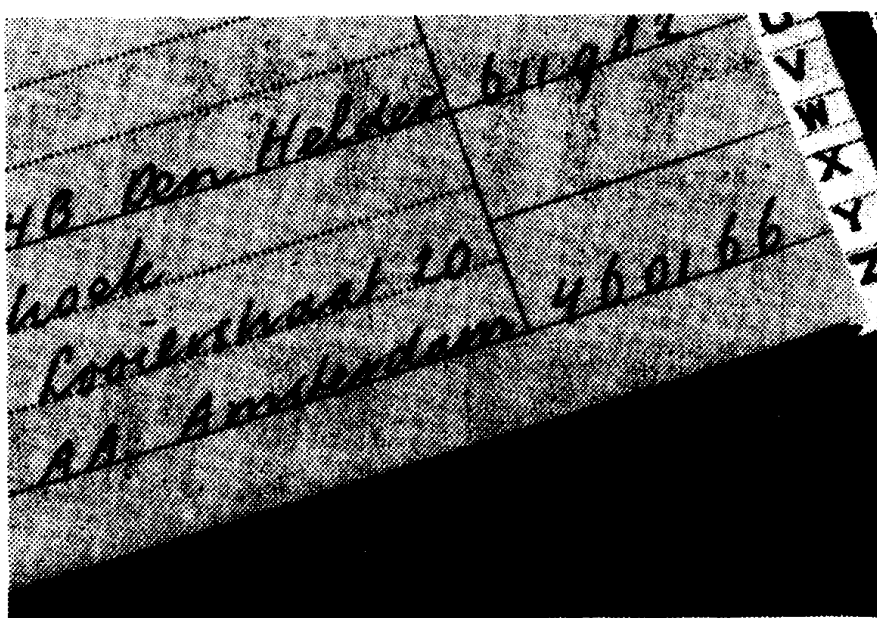 4B Den Helder 611982
hoek
Looierstraat 20
AA Amsterdam 460166
U
V
W
X
Y
Z